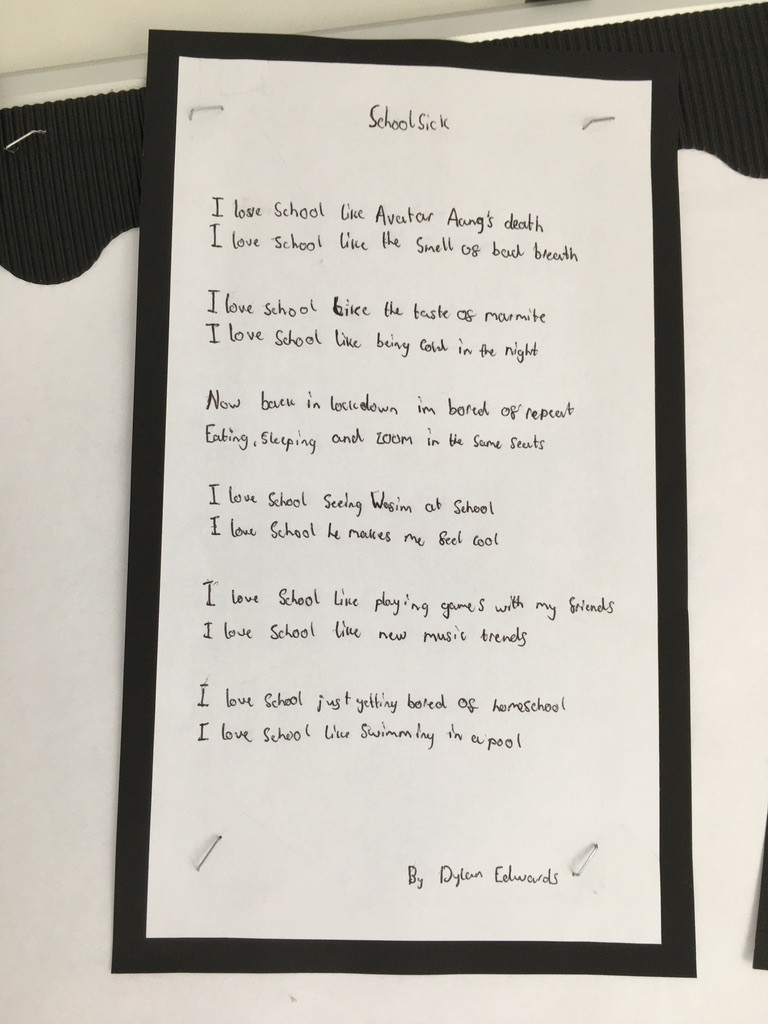 Schoolsick
I love School like Avatar Aang's death
I love school like the smell of bad breath
I love school like the taste of marmite
I love School like being cold in the night
Now back in lockdown im bored of repeat
Eating, Sleeping and zoom in the same seats
I love School seeing Wasim at School
I love School he makes me feel cool
I love School like playing games with my friends
I love School like new music trends
I love School just getting bored of homeschool
I love School like Swimming in a pool
By Dylan Edwards